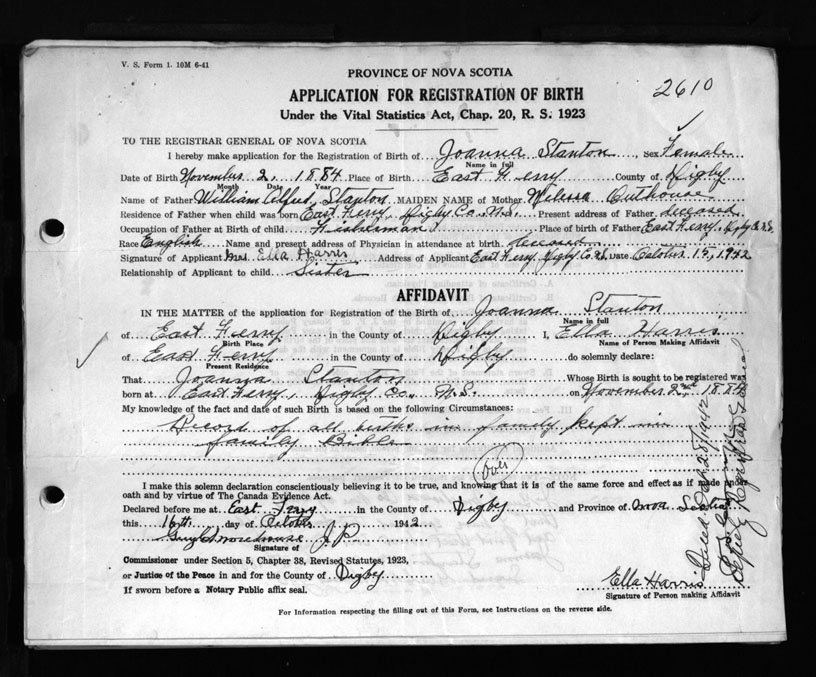 V. S. Form 1. 10M 6-41
PROVINCE OF NOVA SCOTIA
2610
APPLICATION FOR REGISTRATION OF BIRTH
Under the Vital Statistics Act, Chap. 20, R. S. 1923
TO THE REGISTRAR GENERAL OF NOVA SCOTIA
I hereby make application for the Registration of Birth of Joanna Stanton, Sex Female
Name in full
Date of Birth November 2, 1884 Place of Birth East Ferry County of Digby
Month Date Year
Name of Father William Alfred Stanton MAIDEN NAME of Mother Outhouse
Residence of Father when child was born East Ferry, Digby Co. N.S. Present address of Father deceased
Occupation of Father at Birth of child Fisherman Place of birth of Father East Ferry, Digby Co. N.S.
Race English Name and present address of Physician in attendance at birth deceased
Signature of Applicant Mrs Ella Harris Address of Applicant East Ferry Digby Co. N.S. Date October 15, 1942
Relationship of Applicant to child Sister
AFFIDAVIT
IN THE MATTER of the application for Registration of the Birth of Joanna Stanton
Name in full
of East Ferry in the County of Digby I, Ella Harris
Birth Place Name of Person Making Affidavit
of East Ferry in the County of Digby do solemnly declare:
Present Residence
That Joanna Stanton Whose Birth is sought to be registered was
born at East Ferry, Digby Co. N.S. on November 2nd 1884
My knowledge of the fact and date of such Birth is based on the following Circumstances:
Record of all births in family kept in
family Bible
(over)
I make this solemn declaration conscientiously believing it to be true, and knowing that it is of the same force and effect as if made under
oath and by virtue of The Canada Evidence Act.
Declared before me at East Ferry in the County of Digby and Province of Nova Scotia
this 16th day of October 1942
Guy Morehouse J.P.
Signature of
Commissioner under Section 5, Chapter 38, Revised Statutes, 1923,
or Justice of the Peace in and for the County of Digby
If sworn before a Notary Public affix seal.
Ella Harris
Signature of Person making Affidavit
For Information respecting the filling out of this Form, see Instructions on the reverse side.
Oct. 28/1942
Deputy Registrar General